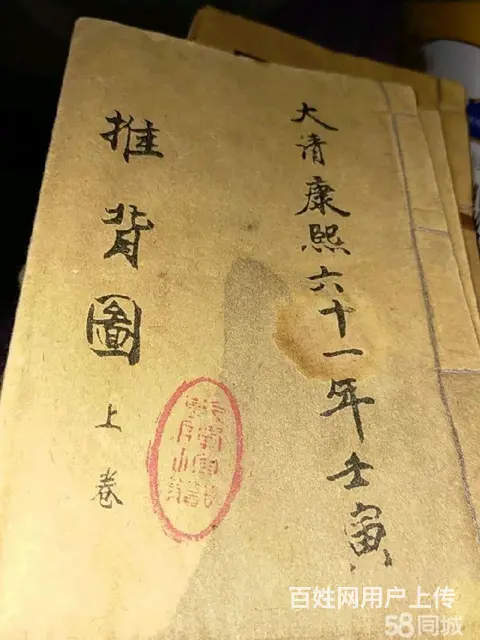 大清康熙六十一年壬寅
推背圖上卷
百姓网用户上传
58同城